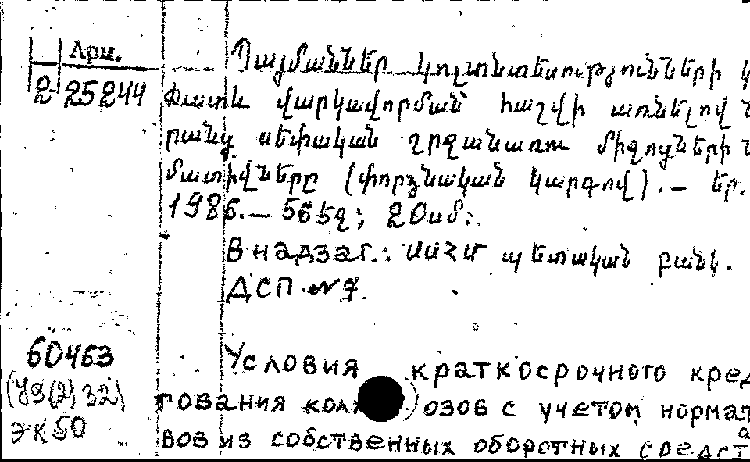 Арм.
2 25244
Պայմաններ կոլտնտեսությունների կ
ճատև վարկավորման հաշվի առնելով ն
րանց սեփական շրջանառու միջոցների ն
մատիվները (փորձնական կարգով). – Եր.
1986. – 56 էջ; 20սմ:
В надзаг.: ՍՍՀՄ պետական բանկ.
ДСП № 7
60463
Условия краткосрочного кред
(У9(2)32)
тования кол озов с учетом нормат
ЭК50
вов из собственных оборотных средст